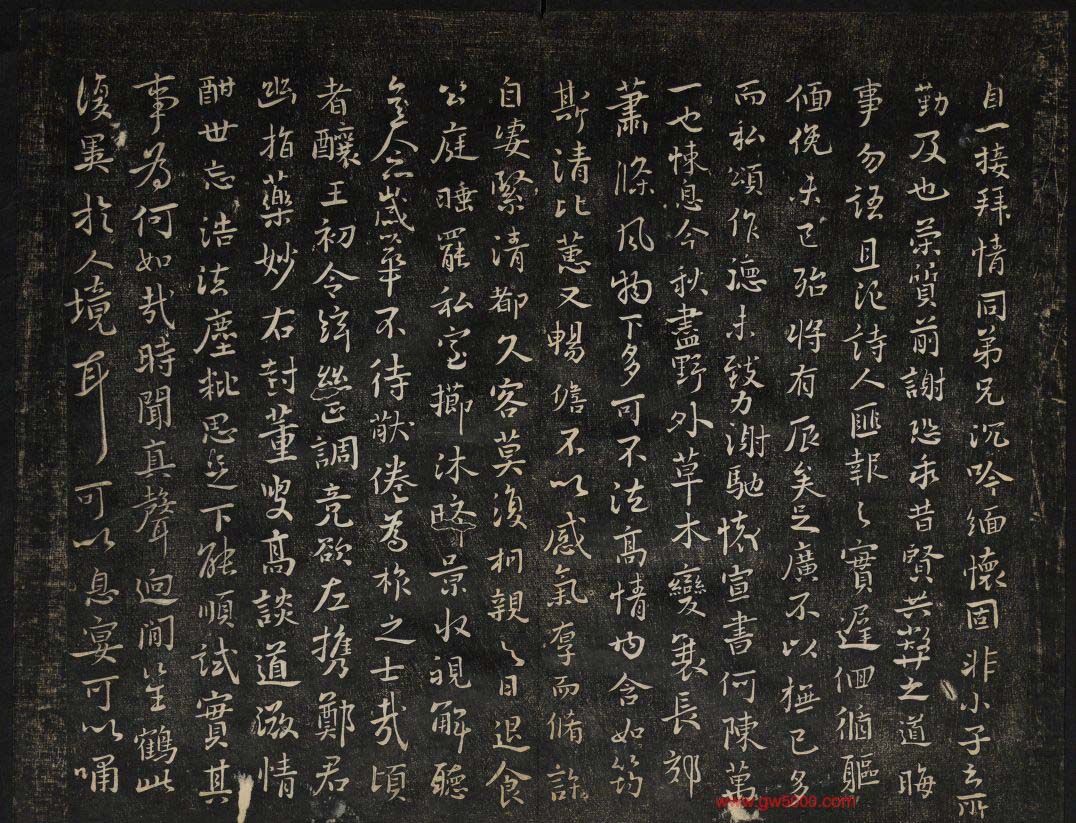 自一接拜情同弟兄沉吟緬懷固非小子之所
勤及也榮質前謝恐乖昔賢共弊之道晦
事勿語且況詩人匪報之實遲徊猶驅
僶俛未已殆將有辰矣足廣不以撫已多
而私頌作德未致力謝馳懷宣書何陳萬
一也悚息今秋盡野外草木變衰長郊
蕭條風物下多可不法高情內含如筠
斯清比蕙又暢儋不以感氣序而脩詐
自婁縣清都久客莫復相親之日退食
公庭睡罷私室擲沐晞景收視解聽
歲華不待猷倦為旅之士哉頃
者釀王初令絲調竞欲左携鄭君
幽指藥妙右封董叟高談道激情
酣世忘浩法塵粃思足下能順試實其
事為何如哉時聞真聲迴間笙鶴此
復異於人境耳可以息宴可以嘯
www.gw5000.com